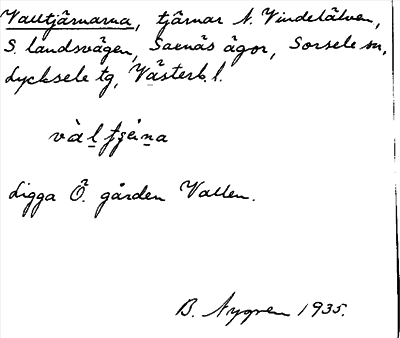 Valltjärnarna, tjärnar N. Vindelälven,
S. landsvägen, Saenäs ägor, Sorsele sn,
Lycksele tg, Västerb. l.
Ligga Ö. gården Vallen.
B. Nygren 1935.